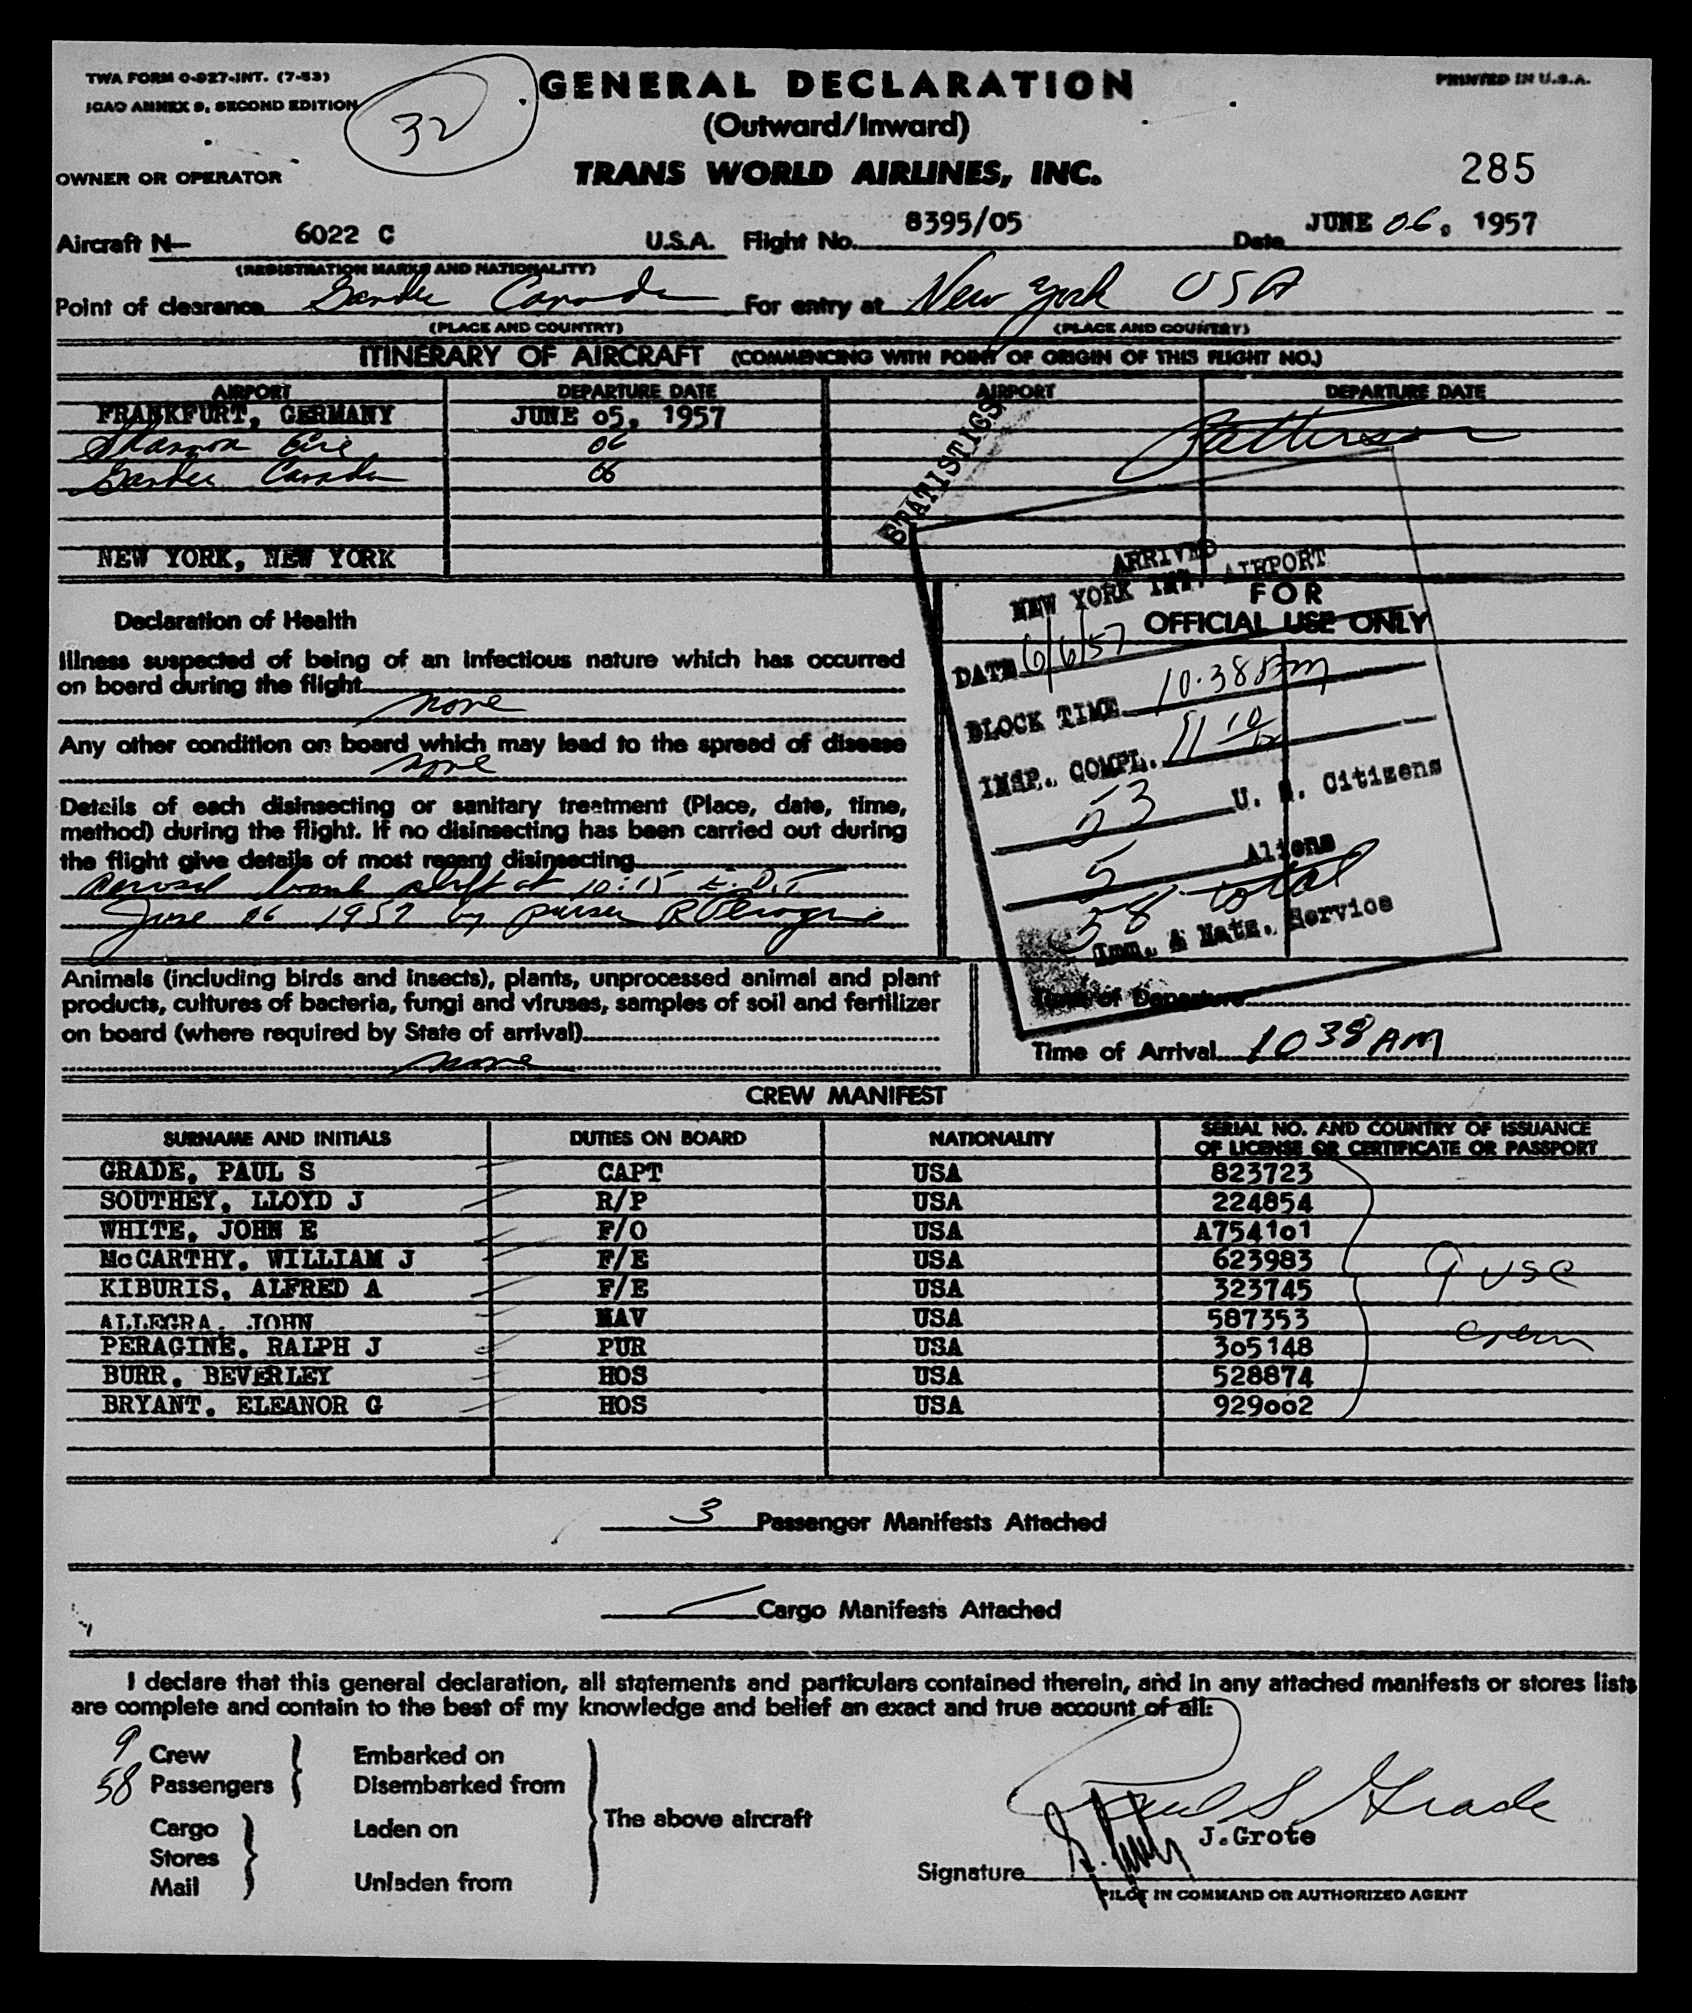 TWA FORM O-927-INT. (7-53)
ICAO ANNEX 9, SECOND EDITION
32
GENERAL DECLARATION
PRINTED IN U.S.A.
(Outward/Inward)
OWNER OR OPERATOR
TRANS WORLD AIRLINES, INC.
285
Aircraft N— 6022 C U.S.A. Flight No. 8395/05 Date JUNE 06, 1957
(REGISTRATION MARKS AND NATIONALITY)
Point of clearance Gander Canada For entry at New York USA
(PLACE AND COUNTRY) (PLACE AND COUNTRY)
ITINERARY OF AIRCRAFT (COMMENCING WITH POINT OF ORIGIN OF THIS FLIGHT NO.)
AIRPORT DEPARTURE DATE AIRPORT DEPARTURE DATE
FRANKFURT, GERMANY JUNE 05, 1957
Shannon Eire 06 Patterson
Gander Canada 06
STATISTICS
NEW YORK, NEW YORK
ARRIVED
NEW YORK INT. AIRPORT
FOR
OFFICIAL USE ONLY
DATE 6/6/57
BLOCK TIME 10:38 AM
INSP. COMPL. 11 10
53 U. S. Citizens
5 Aliens
58 total
Imm. & Natz. Service
Declaration of Health
Illness suspected of being of an infectious nature which has occurred
on board during the flight
none
Any other condition on board which may lead to the spread of disease
none
Details of each disinsecting or sanitary treatment (Place, date, time,
method) during the flight. If no disinsecting has been carried out during
the flight give details of most recent disinsecting
Aerosol bomb at 10:15 E.D.T
June 06 1957 by purser R Peragine
Animals (including birds and insects), plants, unprocessed animal and plant
products, cultures of bacteria, fungi and viruses, samples of soil and fertilizer
on board (where required by State of arrival)
none
Time of Departure
Time of Arrival 10 38 AM
CREW MANIFEST
SURNAME AND INITIALS DUTIES ON BOARD NATIONALITY SERIAL NO. AND COUNTRY OF ISSUANCE
OF LICENSE OR CERTIFICATE OR PASSPORT
GRADE, PAUL S CAPT USA 823723
SOUTHEY, LLOYD J R/P USA 224854
WHITE, JOHN E F/O USA A754101
McCARTHY, WILLIAM J F/E USA 623983
KIBURIS, ALFRED A F/E USA 323745
ALLEGRA, JOHN NAV USA 587353
PERAGINE, RALPH J PUR USA 305148
BURR, BEVERLEY HOS USA 528874
BRYANT, ELEANOR G HOS USA 929002
9 USC
Crew
3 Passenger Manifests Attached
Cargo Manifests Attached
I declare that this general declaration, all statements and particulars contained therein, and in any attached manifests or stores lists
are complete and contain to the best of my knowledge and belief an exact and true account of all:
9 Crew Embarked on
58 Passengers Disembarked from
The above aircraft
Cargo Laden on
Stores
Mail Unladen from
Paul S Grade
J.Grote
Signature
PILOT IN COMMAND OR AUTHORIZED AGENT